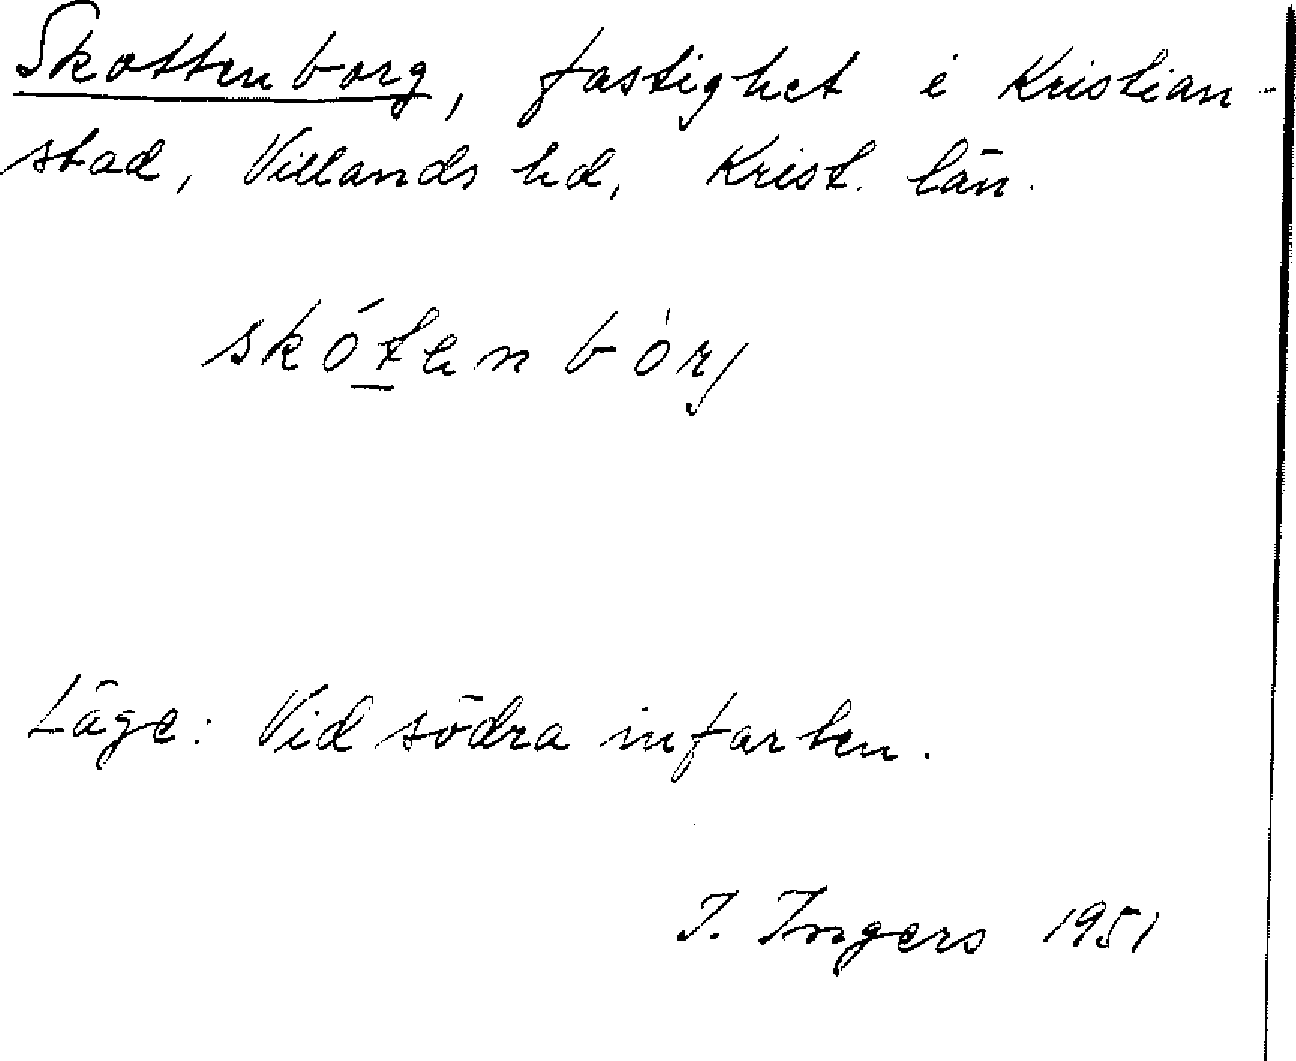 Skottenborg, fastighet i Kristian-
stad, Villands hd, Krist. län.
skót̲en bòrj
Läge: Vid södra infarten.
I. Ingers 1951